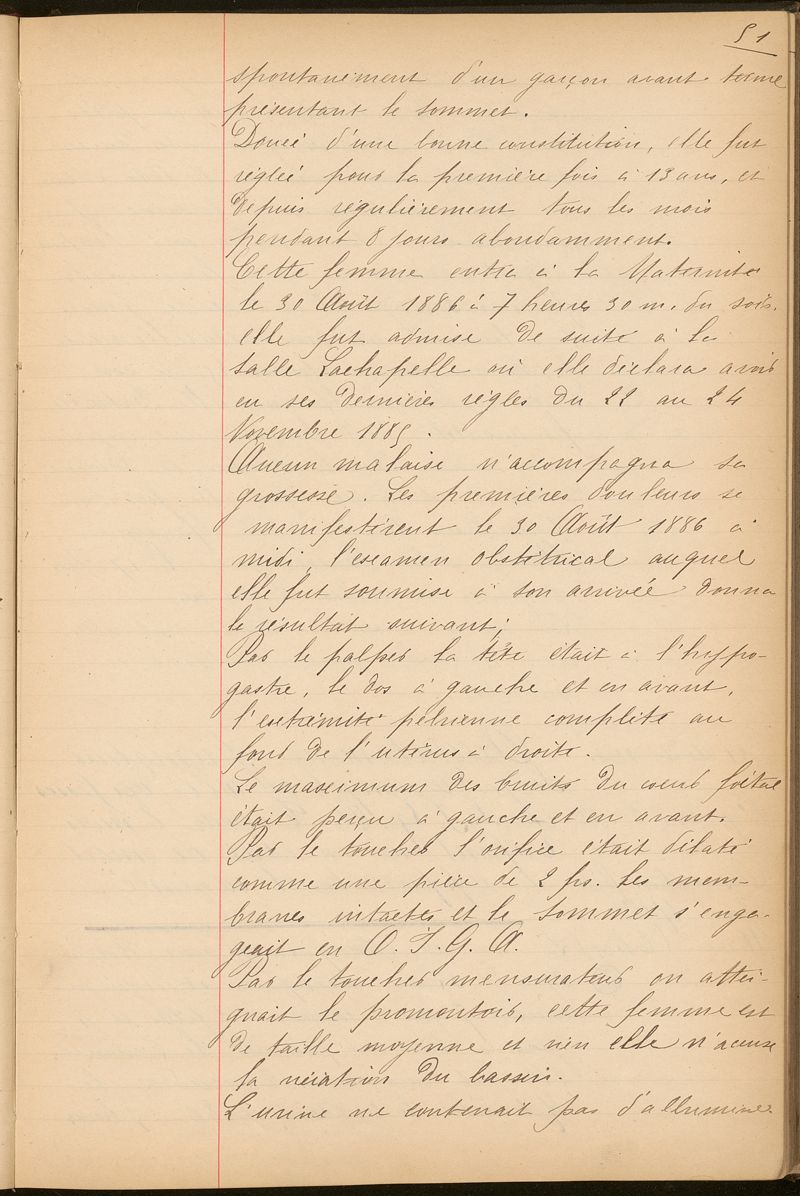 51
spontanément d'un garçon avant terme
présentant le sommet.
Douée d'une bonne constitution, elle fut
réglée pour la première fois à 13 ans, et
depuis régulièrement tous les mois
pendant 8 jours abondamment.
Cette femme entra à la Maternité
le 30 Août 1886 à 7 heures 30 m. du soir.
elle fut admise de suite à la
salle Lachapelle où elle déclara avoir
eu ses dernières règles du 22 au 24
Novembre 1885.
Aucun malaise n'accompagna sa
grossesse. Les premières douleurs se
manifestèrent le 30 Août 1886 à
midi, l'examen obstétrical auquel
elle fut soumise à son arrivée donna
le résultat suivant;
Par le palper la tête était à l'hypo-
gastre, le dos à gauche et en avant,
l'extrémité pelvienne complète au
fond de l'utérus à droite.
Le maximum des bruits du coeur foetal
était perçu à gauche et en avant.
Par le toucher l'orifice était dilaté
comme une pièce de 2 frs. Les mem-
branes intactes et le sommet s'enga-
geait en O. I. G. A.
Par le toucher mensurateur on attei-
gnait le promontoir, cette femme est
de taille moyenne et rien elle n'accuse
la viciation du bassin.
L'urine ne contenait pas d'albumine